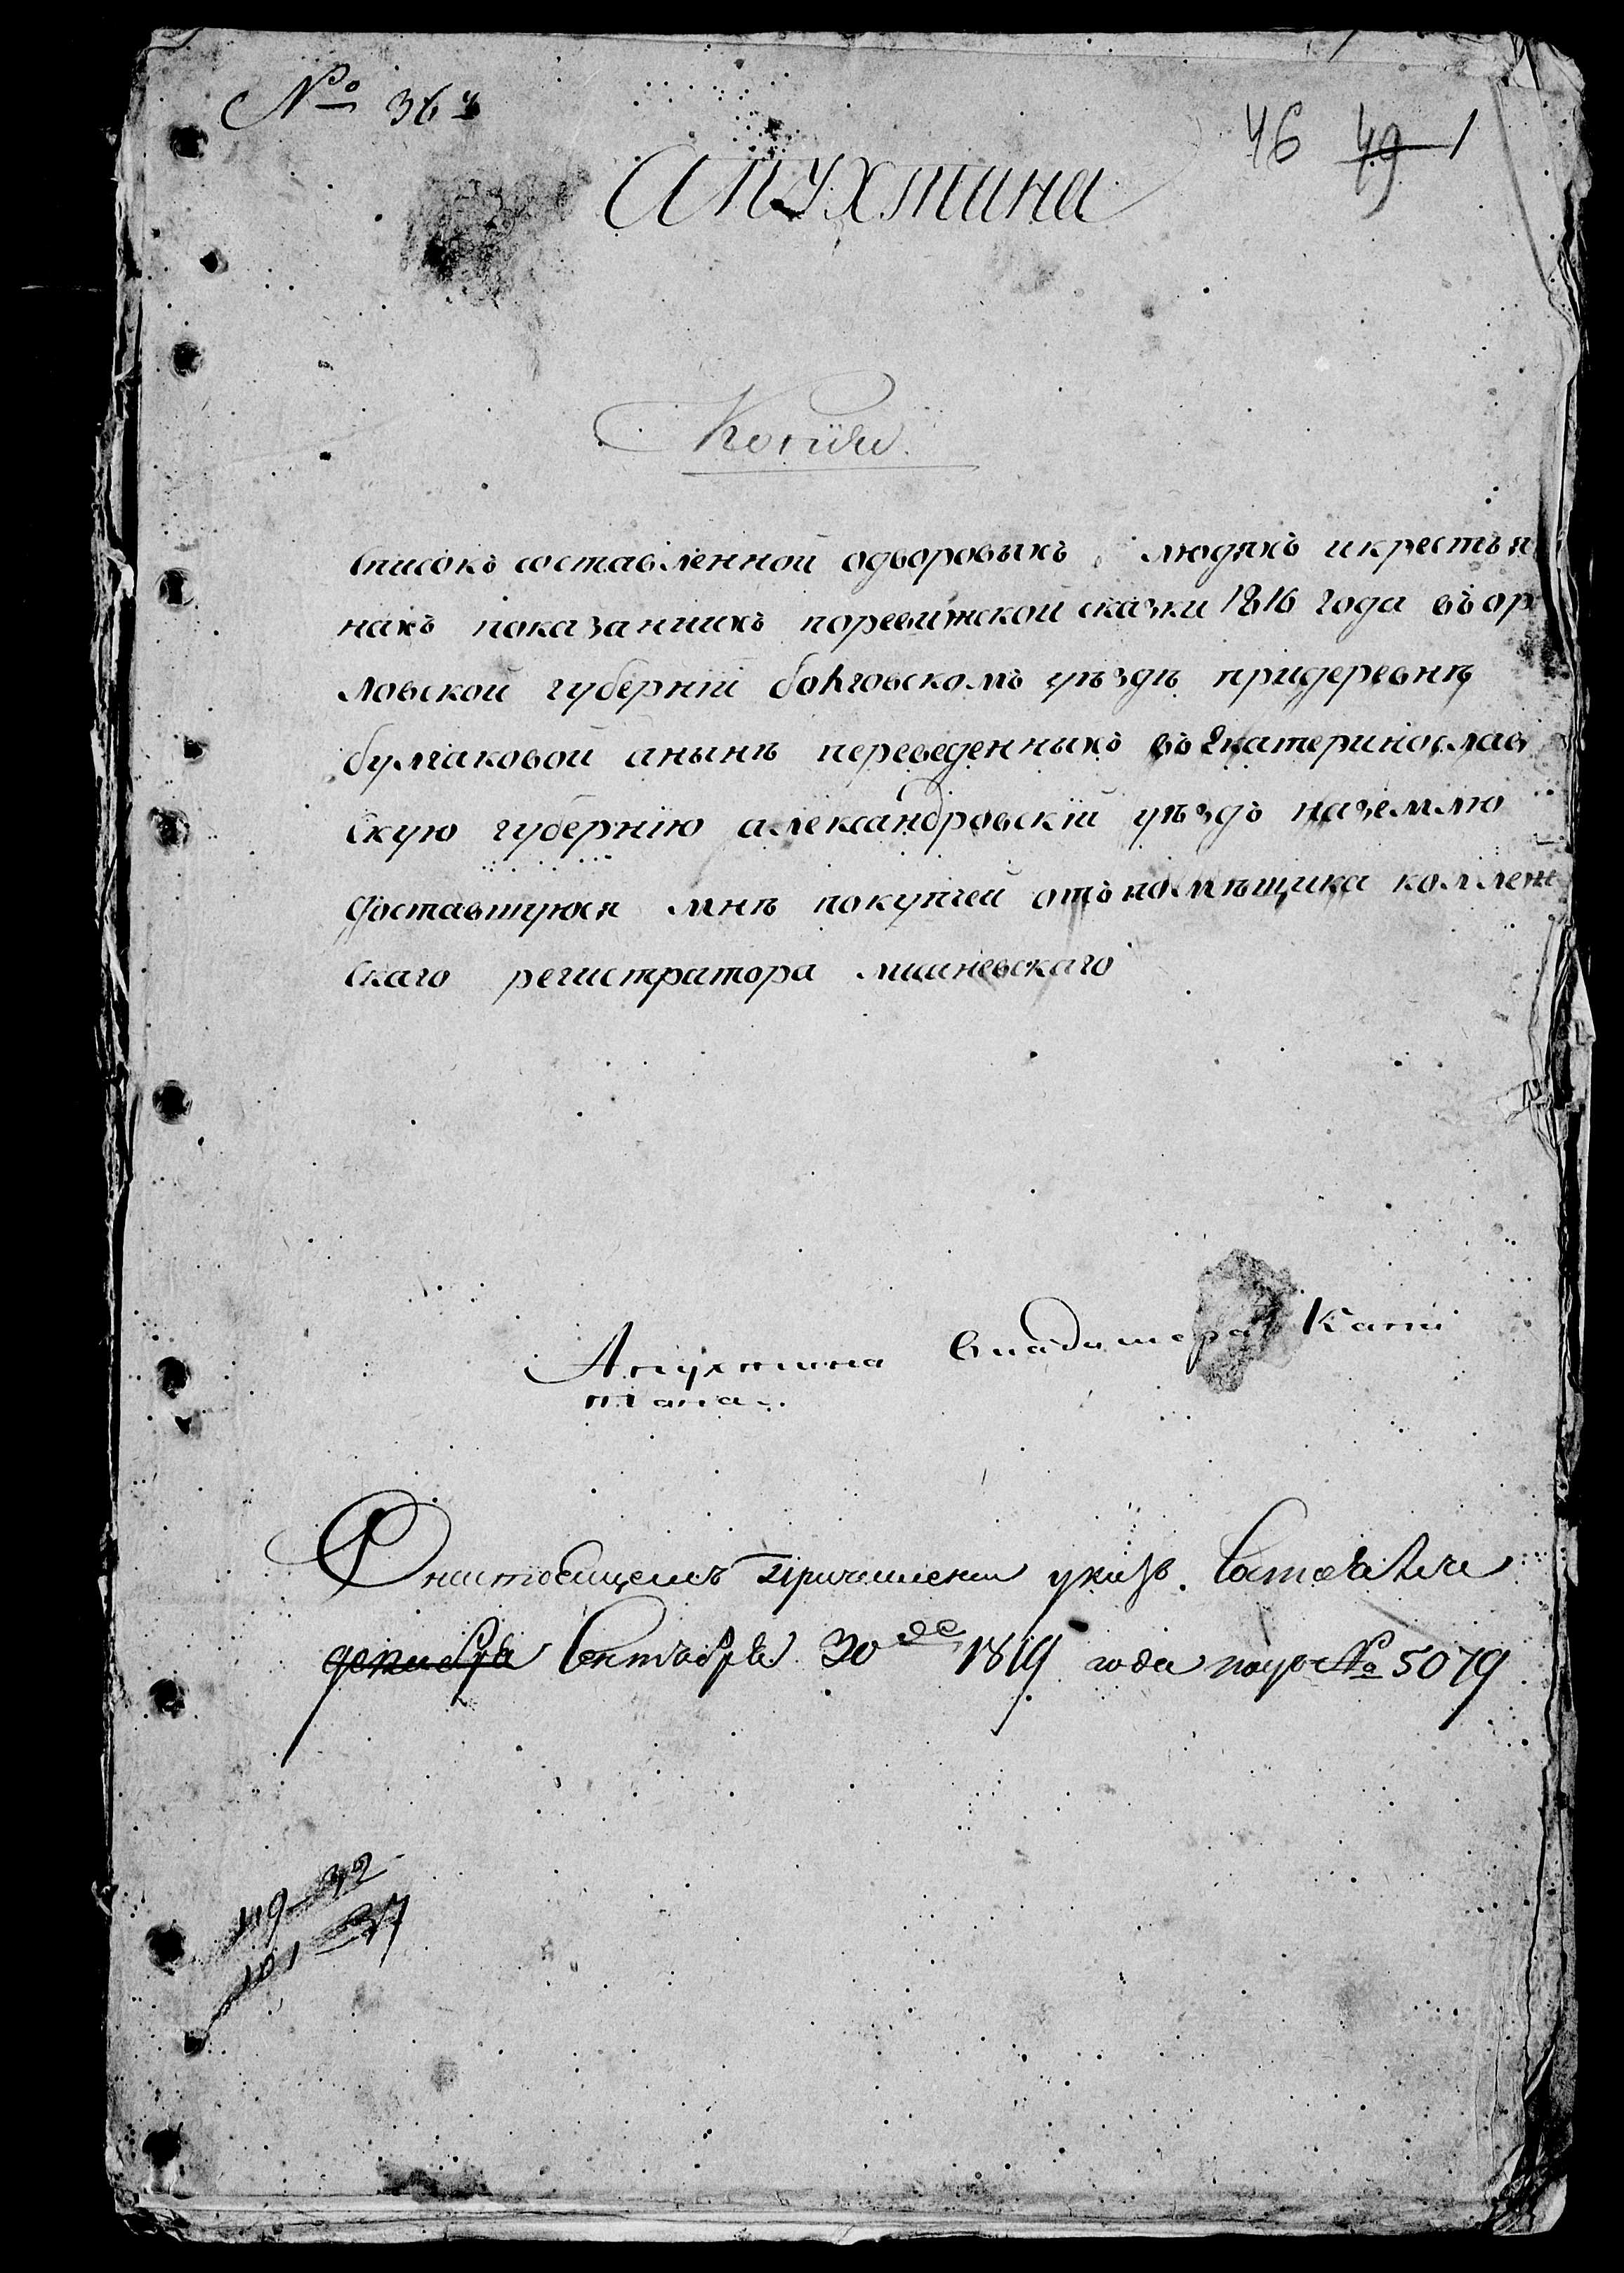 № 363
46 49 1
Апухтина
Копія.
Списокъ составленной одворовыхъ людяхъ икрестья
нахъ показанныхъ поревижской сказки 1816 года въор
ловской губерніи болховскомъ уѣздѣ придеревнѣ
булгаковой анынѣ переведенныхъ въ Екатеринослав
скую губернію александровскій уѣздъ наземлю
доставшуюся мнѣ покупкей отъ помѣщика коллеж
скаго регистратора лишневскаго
Апухтина Владимера Капи
тана.
О настоящемъ причислении указъ. Состоялся
декабря Сентября 30 го 1819 года № 5079
119-32
101-37